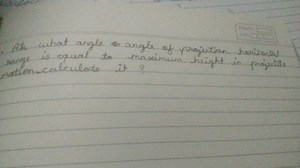 At what angle angle of projection horizontal
range is equal to maximum height in projectile
motion calculate it ?